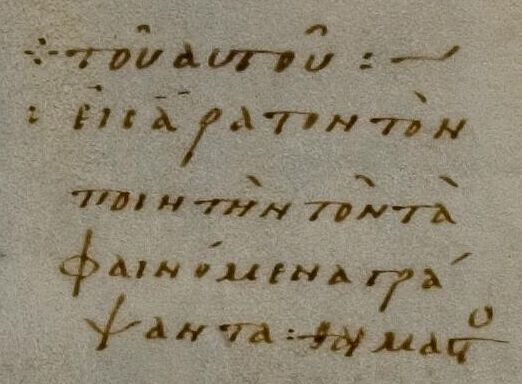 ⁘ τοῦ αὐτοῦ :—
: εἰς ἄρατον τὸν
ποιητὴν τὸν τὰ
φαινόμενα γρά
ψαντα :